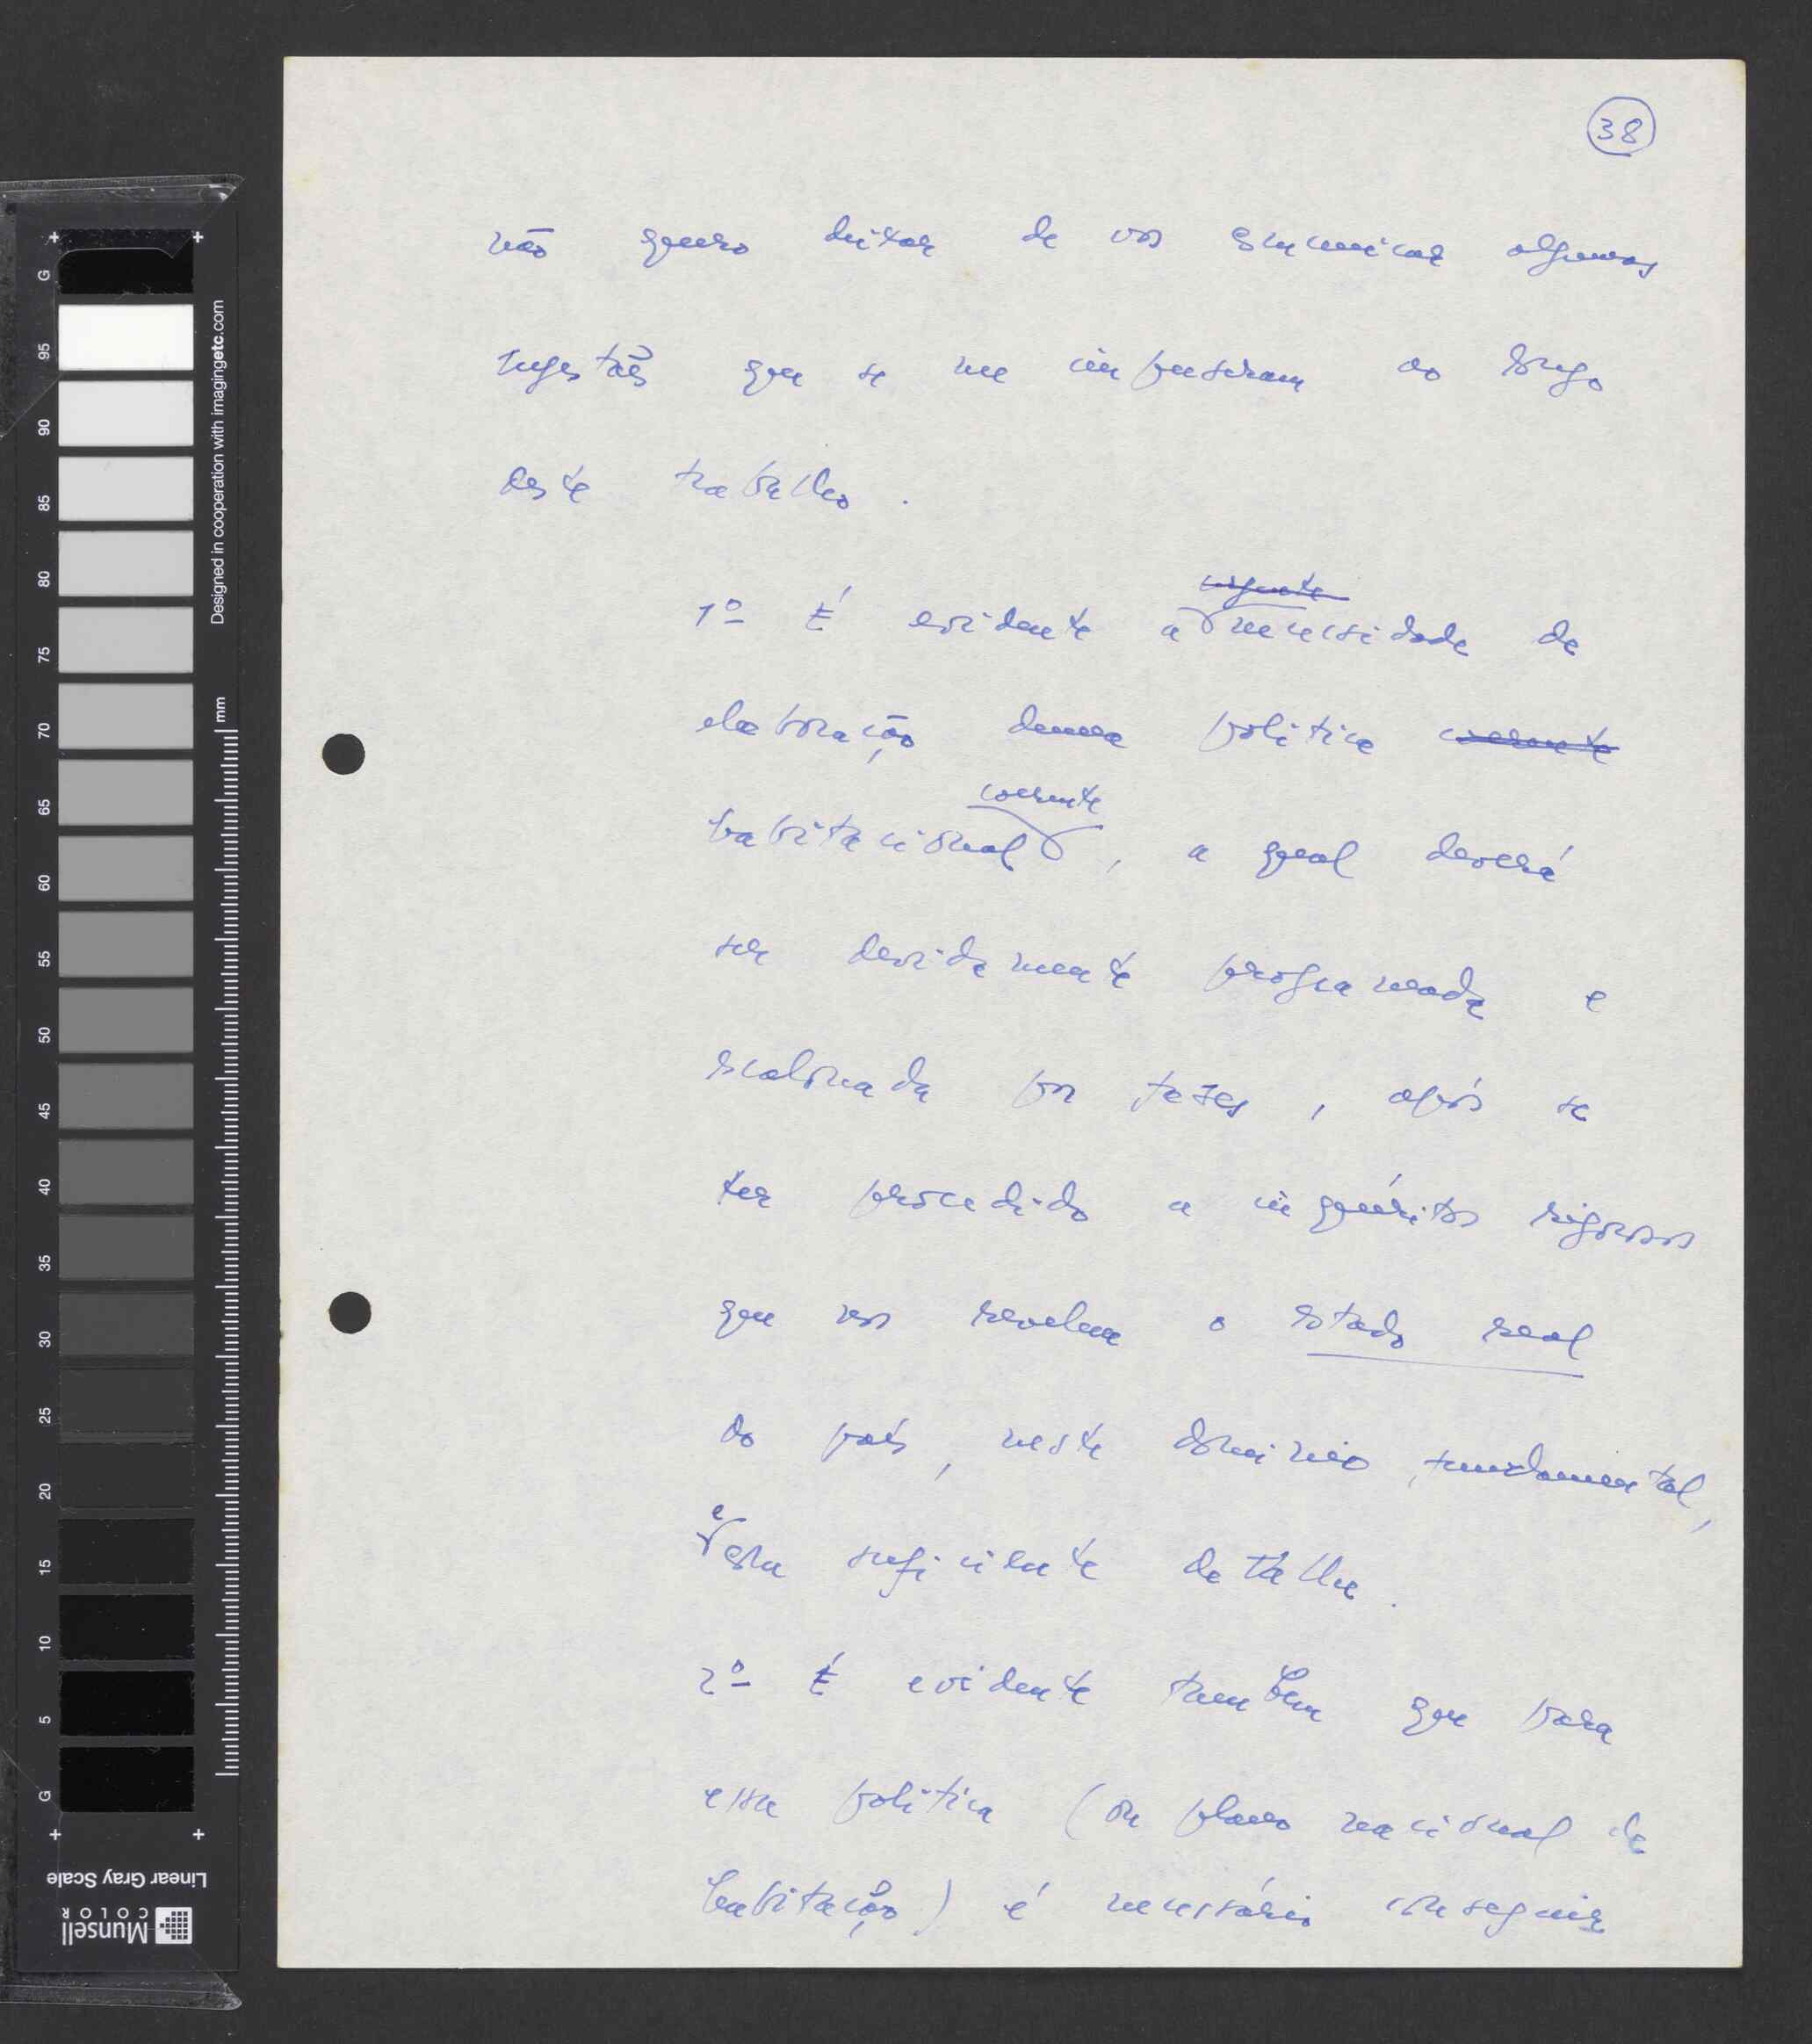 38
não quero deixar de vos comunicar algumas
sugestões que se me impuseram ao longo
deste trabalho.
urgente
1º É evidente a necessidade de
elaboração duma política coerente
coerente
habitacional, a qual deverá
ser devidamente programada e
escalonada por fases, após se
ter procedido a inquéritos rigorosos
que nos revelem o estado real
do país, neste domínio fundamental,
e
com suficiente detalhe.
2º É evidente também que para
essa política (ou plano nacional de
habitação) é necessário conseguir
G
95
90
85
80
75
70
65
60
55
50
45
40
35
30
25
20
15
10
5
G
Designed in cooperation with imagingetc.com
mm
Linear Gray Scale
Munsell
COLOR